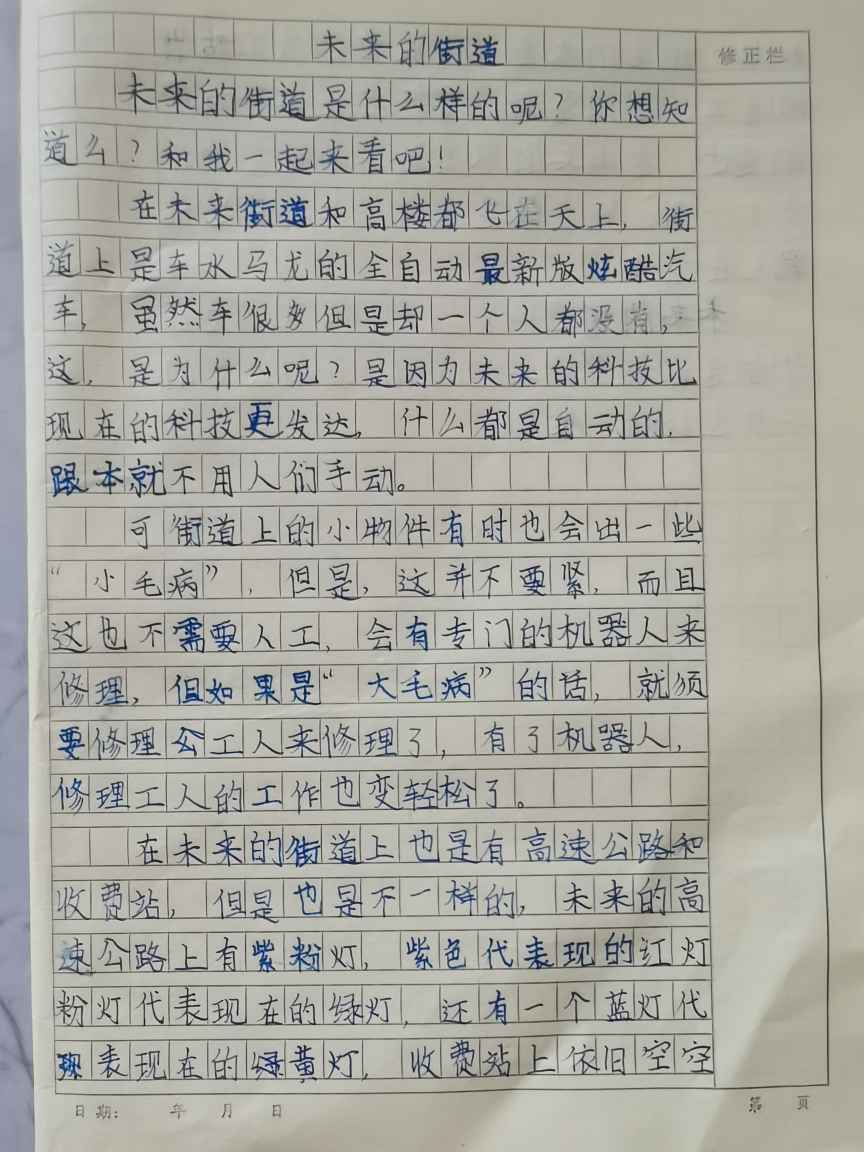 未来的街道
修正栏
未来的街道是什么样的呢？你想知
道么？和我一起来看吧！
在未来街道和高楼都飞在天上，街
道上是车水马龙的全自动最新版炫酷汽
车，虽然车很多但是却一个人都没有，
这，是为什么呢？是因为未来的科技比
现在的科技更发达，什么都是自动的，
跟本就不用人们手动。
可街道上的小物件有时也会出一些
“小毛病”，但是，这并不要紧，而且
这也不需要人工，会有专门的机器人来
修理，但如果是“大毛病”的话，就须
要修理工人来修理了，有了机器人，
修理工人的工作也变轻松了。
在未来的街道上也是有高速公路和
收费站，但是也是不一样的，未来的高
速公路上有紫粉灯，紫色代表现的红灯
粉灯代表现在的绿灯，还有一个蓝灯代
表现在的黄灯，收费站上依旧空空
日期： 年 月 日
第 页